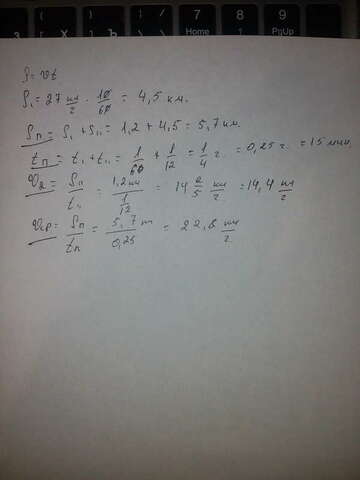 7 8 9
Home ↑ PgUp
S = vt
S₁ = 27 км/г · 10/60 = 4,5 км.
Sп = S₁ + S₁₁ = 1,2 + 4,5 = 5,7 км.
tп = t₁ + t₁₁ = 1/60 + 1/12 = 1/4 г. = 0,25 г. = 15 мин.
V₂ = Sп/t₁₁ = 1,2 км / 1/12 = 14 2/5 км/г = 14,4 км/г
Vср = Sп/tп = 5,7 / 0,25 = 22,8 км/г